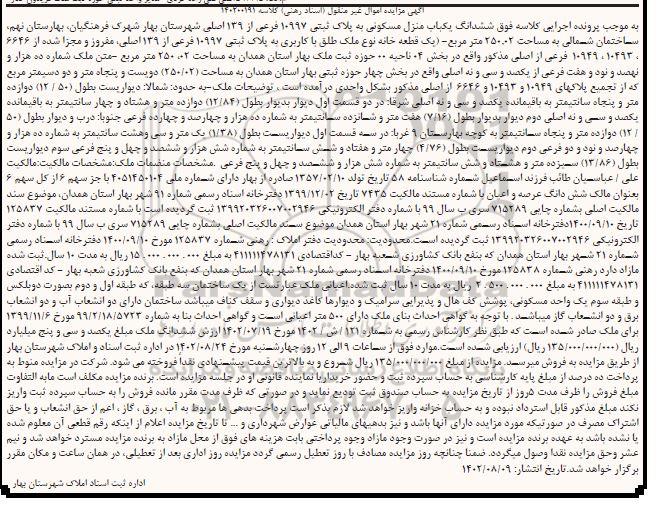 آگهی مزایده اموال غیر منقول (اسناد رهنی) کلاسه ۱۴۰۲۰۰۱۹۱
به موجب پرونده اجرایی کلاسه فوق ششدانگ یکباب منزل مسکونی به پلاک ثبتی ۱۰۹۹۷ فرعی از ۱۳۹اصلی شهرستان بهار شهرک فرهنگیان، بهارستان نهم،
ساختمان شمالی به مساحت ۲۵۰.۰۲ متر مربع- (یک قطعه خانه نوع ملک طلق با کاربری به پلاک ثبتی ۱۰۹۹۷ فرعی از ۱۳۹ اصلی، مفروز و مجزا شده از ۶۶۴۶
، ۱۰۴۹۳ ، ۱۰۹۴۹ فرعی از اصلی مذکور واقع در بخش ۰۴ ناحیه ۰۰ حوزه ثبت ملک بهار استان همدان به مساحت ۲۵۰.۰۲ متر مربع -متن ملک شماره ده هزار و
نهصد و نود و هفت فرعی از یکصد و سی و نه اصلی واقع در بخش چهار حوزه ثبتی بهار استان همدان به مساحت (۲۵۰/۰۲) دویست و پنجاه متر و دو دسیمتر مربع
که از تجمیع پلاکهای ۱۰۹۴۹ و ۱۰۴۹۳ و ۶۶۴۶ از اصلی مذکور بشکل واحدی در آمده است ، توضیحات ملک-به حدود: شمالا: دیواریست بطول (۵۰ / ۱۲) دوازده
متر و پنجاه سانتیمتر به باقیمانده یکصد و سی و نه اصلی شرقا: در دو قسمت اول دیوار بدیوار بطول (۱۲/۸۴) دوازده متر و هشتاد و چهار سانتیمتر به باقیمانده
یکصد و سی و نه اصلی دوم دیوار بدیوار بطول (۷/۱۶) هفت متر و شانزده سانتیمتر به شماره ده هزار و چهارصد و چهارده فرعی جنوبا: درب و دیوار بطول (۵۰
/ ۱۲) دوازده متر و پنجاه سانتیمتر به کوچه بهارستان ۹ غربا: در سه قسمت اول دیواریست بطول (۱/۳۸) یک متر و سی وهشت سانتیمتر به شماره ده هزار و
چهارصد و نود و دو فرعی دوم دیواریست بطول (۴/۷۶) چهار متر و هفتاد و شش سانتیمتر به شماره شش هزار و ششصد و چهل و پنج فرعی سوم دیواریست
بطول (۱۳/۸۶) سیزده متر و هشتاد و شش سانتیمتر به شماره شش هزار و ششصد و چهل و پنج فرعی .مشخصات منضمات ملک:مشخصات مالکیت:مالکیت
علی / عباسیان طائب فرزند اسماعیل شماره شناسنامه ۵۸ تاریخ تولد ۱۳۵۷/۰۲/۱۰ صادره از بهار دارای شماره ملی ۴۰۵۱۴۵۰۱۰۴ با جز سهم ۶ از کل سهم ۶
بعنوان مالک شش دانگ عرصه و اعیان با شماره مستند مالکیت ۷۴۳۵ تاریخ ۱۳۹۹/۱۲/۰۲ دفترخانه اسناد رسمی شماره ۹۱ شهر بهار استان همدان، موضوع سند
مالکیت اصلی بشماره چاپی ۷۱۵۲۸۹ سری ب سال ۹۹ با شماره دفتر الکترونیکی ۱۳۹۹۲۰۳۲۶۰۰۷۰۰۲۹۴۶ ثبت گردیده است با شماره مستند مالکیت ۱۲۵۸۳۷
تاریخ ۱۴۰۰/۰۹/۱۰دفترخانه اسناد رسمی شماره ۲۱ شهر بهار استان همدان موضوع سند مالکیت اصلی بشماره چاپی ۷۱۵۲۸۹ سری ب سال ۹۹ با شماره دفتر
الکترونیکی ۱۳۹۹۲۰۳۲۶۰۰۷۰۰۲۹۴۶ ثبت گردیده است.محدودیت:محدودیت دفتر املاک : رهنی شماره ۱۲۵۸۳۷ مورخ ۱۴۰۰/۰۹/۱۰ دفترخانه اسناد رسمی
شماره ۲۱ شهر بهار استان همدان که بنفع بانک کشاورزی شعبه بهار - کداقتصادی ۴۱۱۱۱۱۴۷۸۱۳۱ به مبلغ ۰۰۰ . ۰۰۰ . ۰۰۰ . ۱۵ ریال به مدت ۱۰ سال.ثبت شده
مازاد دارد رهنی شماره ۱۲۵۸۳۸ مورخ ۱۴۰۰/۰۹/۱۰ دفترخانه اسناد رسمی شماره ۲۱ شهر بهار استان همدان که بنفع بانک کشاورزی شعبه بهار - کد اقتصادی
۴۱۱۱۱۱۴۷۸۱۳۱ به مبلغ ۰۰۰ . ۰۰۰ . ۵۰۰ . ۲ ریال به مدت ۱۰ سال ثبت شده)اعیانی ملک عبارتست از یک ساختمان سه طبقه، که طبقه اول و دوم بصورت دوبلکس
و طبقه سوم یک واحد مسکونی، پوشش کف هال و پذیرایی سرامیک و دیوارها کاغذ دیواری و سقف کناف میباشد ساختمان دارای دو انشعاب آب و دو انشعاب
برق و دو انشعاب گاز میباشد . با توجه به گواهی احداث بنای ملک دارای ۵۰۰ متر اعیانی است و گواهی احداث بنا به شماره ۹۹/۲/۱۸/۵۷۲۳ مورخ ۱۳۹۹/۱۱/۶
برای ملک صادر شده است که طبق نظر کارشناس رسمی به شماره ۱۲۱ / ش / ۱۴۰۲ مورخ ۱۴۰۲/۰۷/۱۹ ارزش ششدانگ ملک مبلغ یکصد و سی و پنج میلیارد
ریال (۱۳۵/۰۰۰/۰۰۰/۰۰۰ ریال) ارزیابی شده است.موارد فوق از ساعات ۹ الی ۱۲ روز چهارشنبه مورخ ۱۴۰۲/۰۸/۲۴ در اداره ثبت اسناد و املاک شهرستان بهار
از طریق مزایده به فروش میرسد. مزایده از مبلغ ۱۳۵/۰۰۰/۰۰۰/۰۰۰ ریال شروع و به بالاترین قیمت پیشنهادی نقدا فروخته می شود. شرکت در مزایده منوط به
پرداخت ده درصد از مبلغ پایه کارشناسی به حساب سپرده ثبت و حضور خریدار یا نماینده قانونی او در جلسه مزایده است. برنده مزایده مکلف است مابه التفاوت
مبلغ فروش را ظرف مدت ۵روز از تاریخ مزایده به حساب صندوق ثبت تودیع نماید و در صورتی که ظرف مدت مقرر مانده فروش را به حساب سپرده ثبت واریز
نکند مبلغ مذکور قابل استرداد نبوده و به حساب خزانه واریز خواهد شد.لازم بذکر است پرداخت بدهی ها مربوط به آب ، برق ، گاز ، اعم از حق انشعاب و یا حق
اشتراک مصرف در صورتیکه مورد مزایده دارای آنها باشد و نیز بدهیهای مالیاتی عوارض شهرداری و ... تا تاریخ مزایده اعلام از اینکه رقم قطعی آن معلوم شده
یا نشده باشد به عهده برنده مزایده است و نیز در صورت وجود مازاد وجوه پرداختی بابت هزینه های فوق از محل مازاد به برنده مزایده مسترد خواهد شد و نیم
عشر وحق مزایده نقدا وصول میگردد. ضمنا چنانچه روز مزایده مصادف با روز تعطیل رسمی گردد مزایده روز اداری بعد از تعطیلی، در همان ساعت و مکان مقرر
برگزار خواهد شد.تاریخ انتشار: ۱۴۰۲/۰۸/۰۹
اداره ثبت اسناد املاک شهرستان بهار